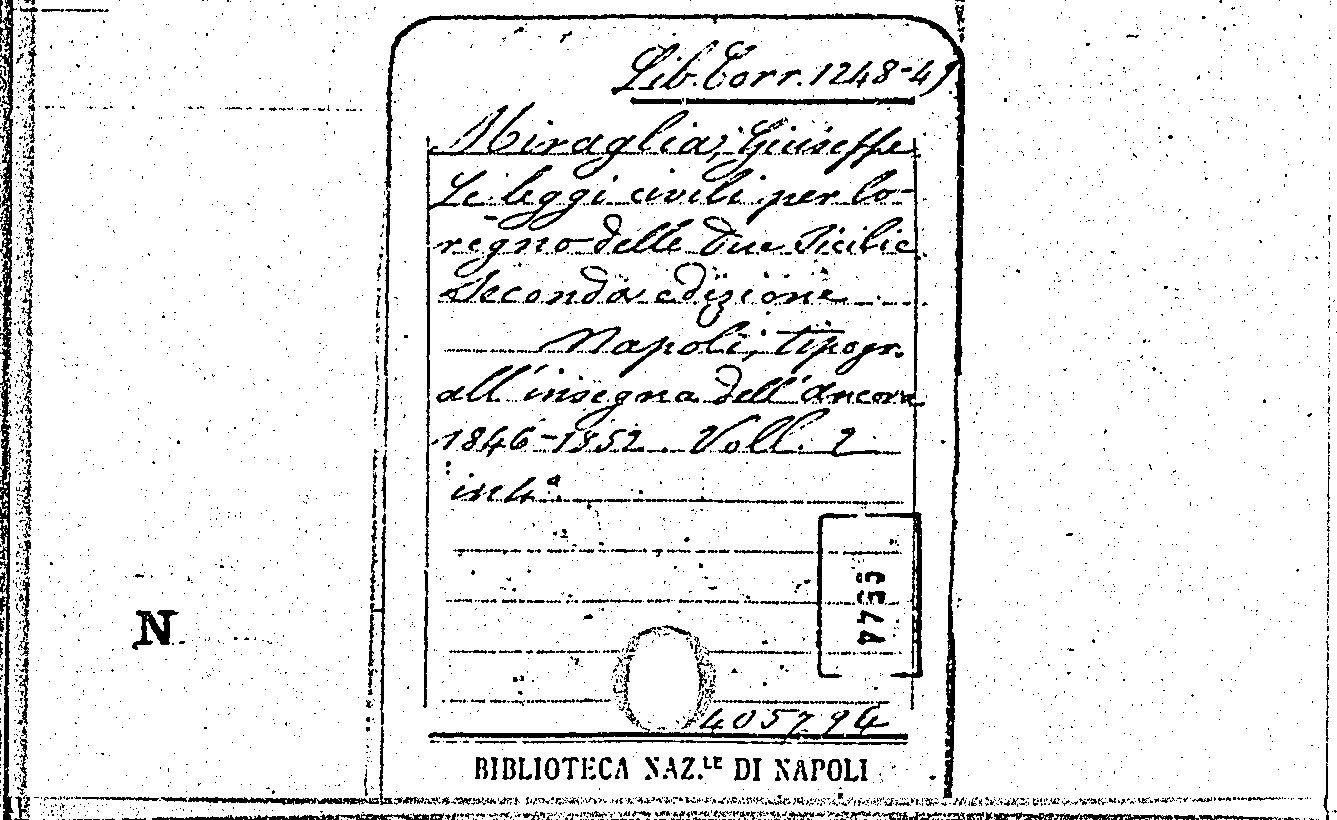 Lib. Corr. 1248-49
Miraglia, Giuseppe
Le leggi civili per lo
regno delle Due Sicilie
Seconda edizione
Napoli, tipogr.
all'insegna dell'Ancora
1846-1852. Voll. 2
in 4°
N
405794
BIBLIOTECA NAZ.LE DI NAPOLI